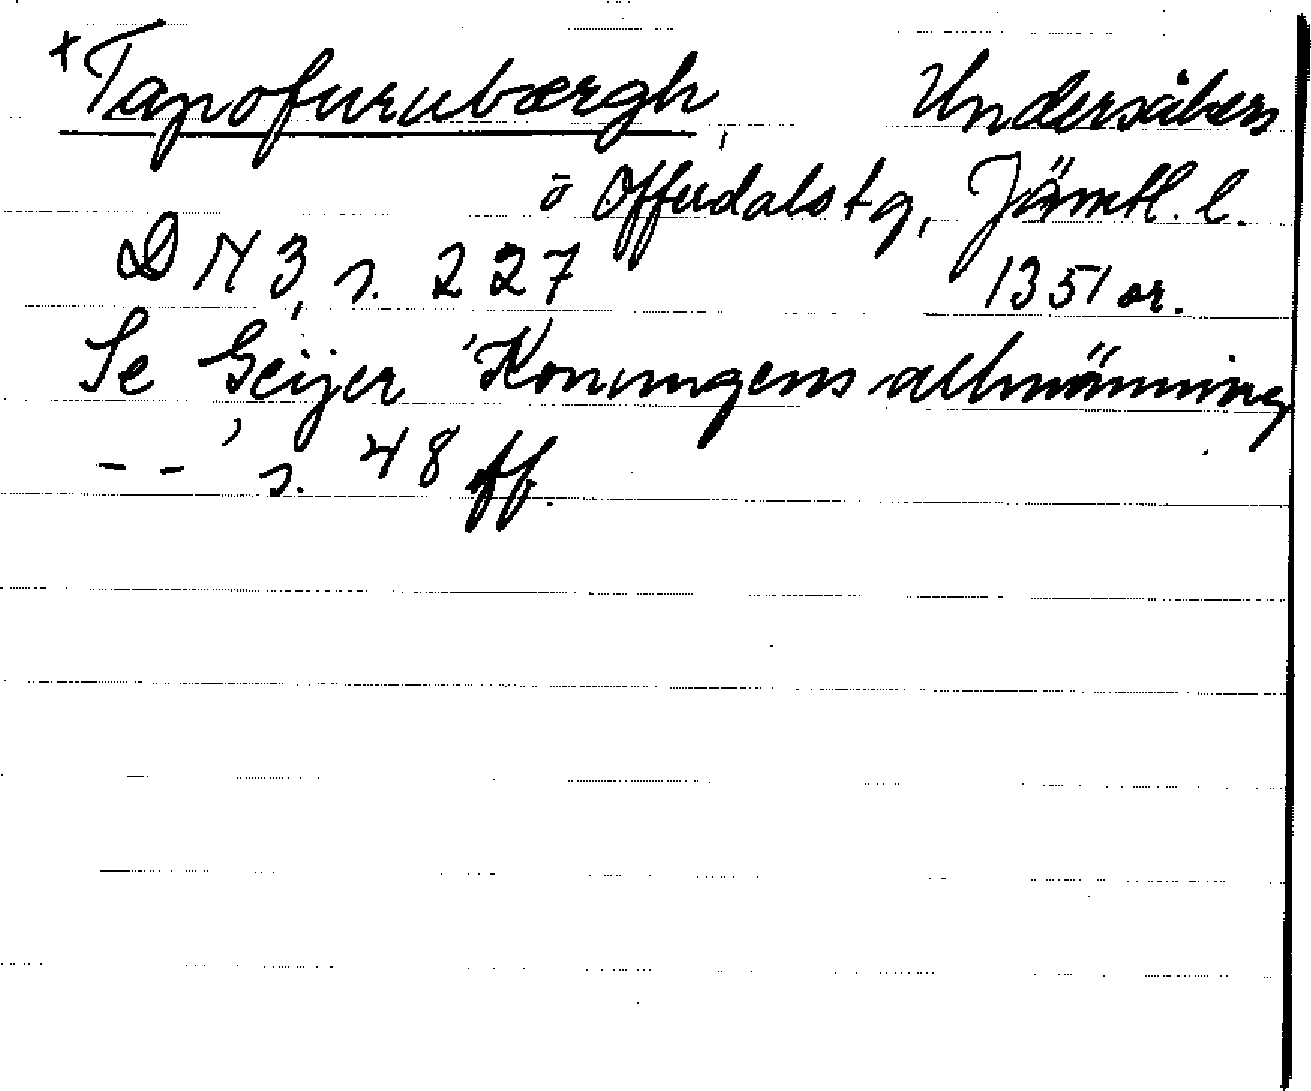 +Tapofurubærgh, Undersåkers
o Offerdals tg, Jämtl. l.
DN 3, s. 227 1351 or.
Se Geijer 'Konungens allmänning
- - ' s. 48 ff.